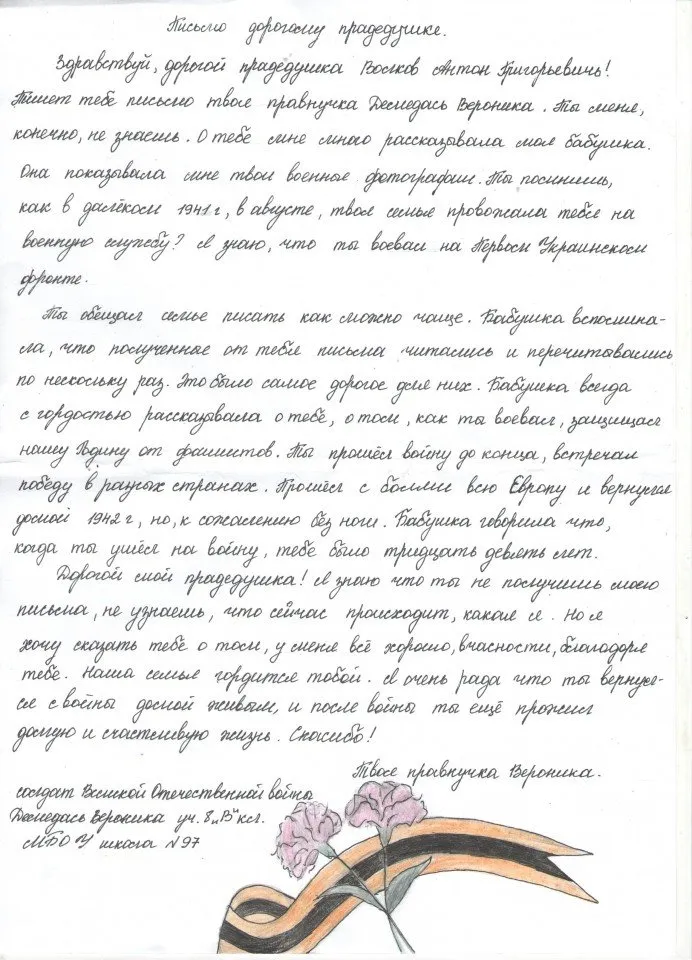 Письмо дорогому прадедушке.
Здравствуй, дорогой прадедушка Волков Антон Григорьевичь!
Пишет тебе письмо твоя правнучка Демедась Вероника. Ты меня,
конечно, не знаешь. О тебе мне много рассказывала моя бабушка.
Она показывала мне твои военные фотографии. Ты помнишь,
как в далёком 1941 г, в августе, твоя семья провожала тебя на
военную службу? Я знаю, что ты воевал на Первом Украинском
фронте.
Ты обещал семье писать как можно чаще. Бабушка вспомина-
ла, что полученные от тебя письма читались и перечитывались
по нескольку раз. Это было самое дорогое для них. Бабушка всегда
с гордостью рассказывала о тебе, о том, как ты воевал, защищал
нашу Родину от фашистов. Ты прошёл войну до конца, встречал
победу в разных странах. Прошёл с боями всю Европу и вернулся
домой 1942 г, но, к сожалению без ноги. Бабушка говорила что,
когда ты ушёл на войну, тебе было тридцать девять лет.
Дорогой мой прадедушка! Я знаю что ты не получишь моего
письма, не узнаешь, что сейчас происходит, какая я. Но я
хочу сказать тебе о том, у меня всё хорошо, вчасности, благодаря
тебе. Наша семья гордится тобой. Я очень рада что ты вернул-
ся с войны домой живым, и после войны ты ещё прожил
долгую и счастливую жизнь. Спасибо!
Твоя правнучка Вероника.
солдат Великой Отечественной войны
Демедась Вероника уч. 8 „В" кл.
МБОУ школа N 97